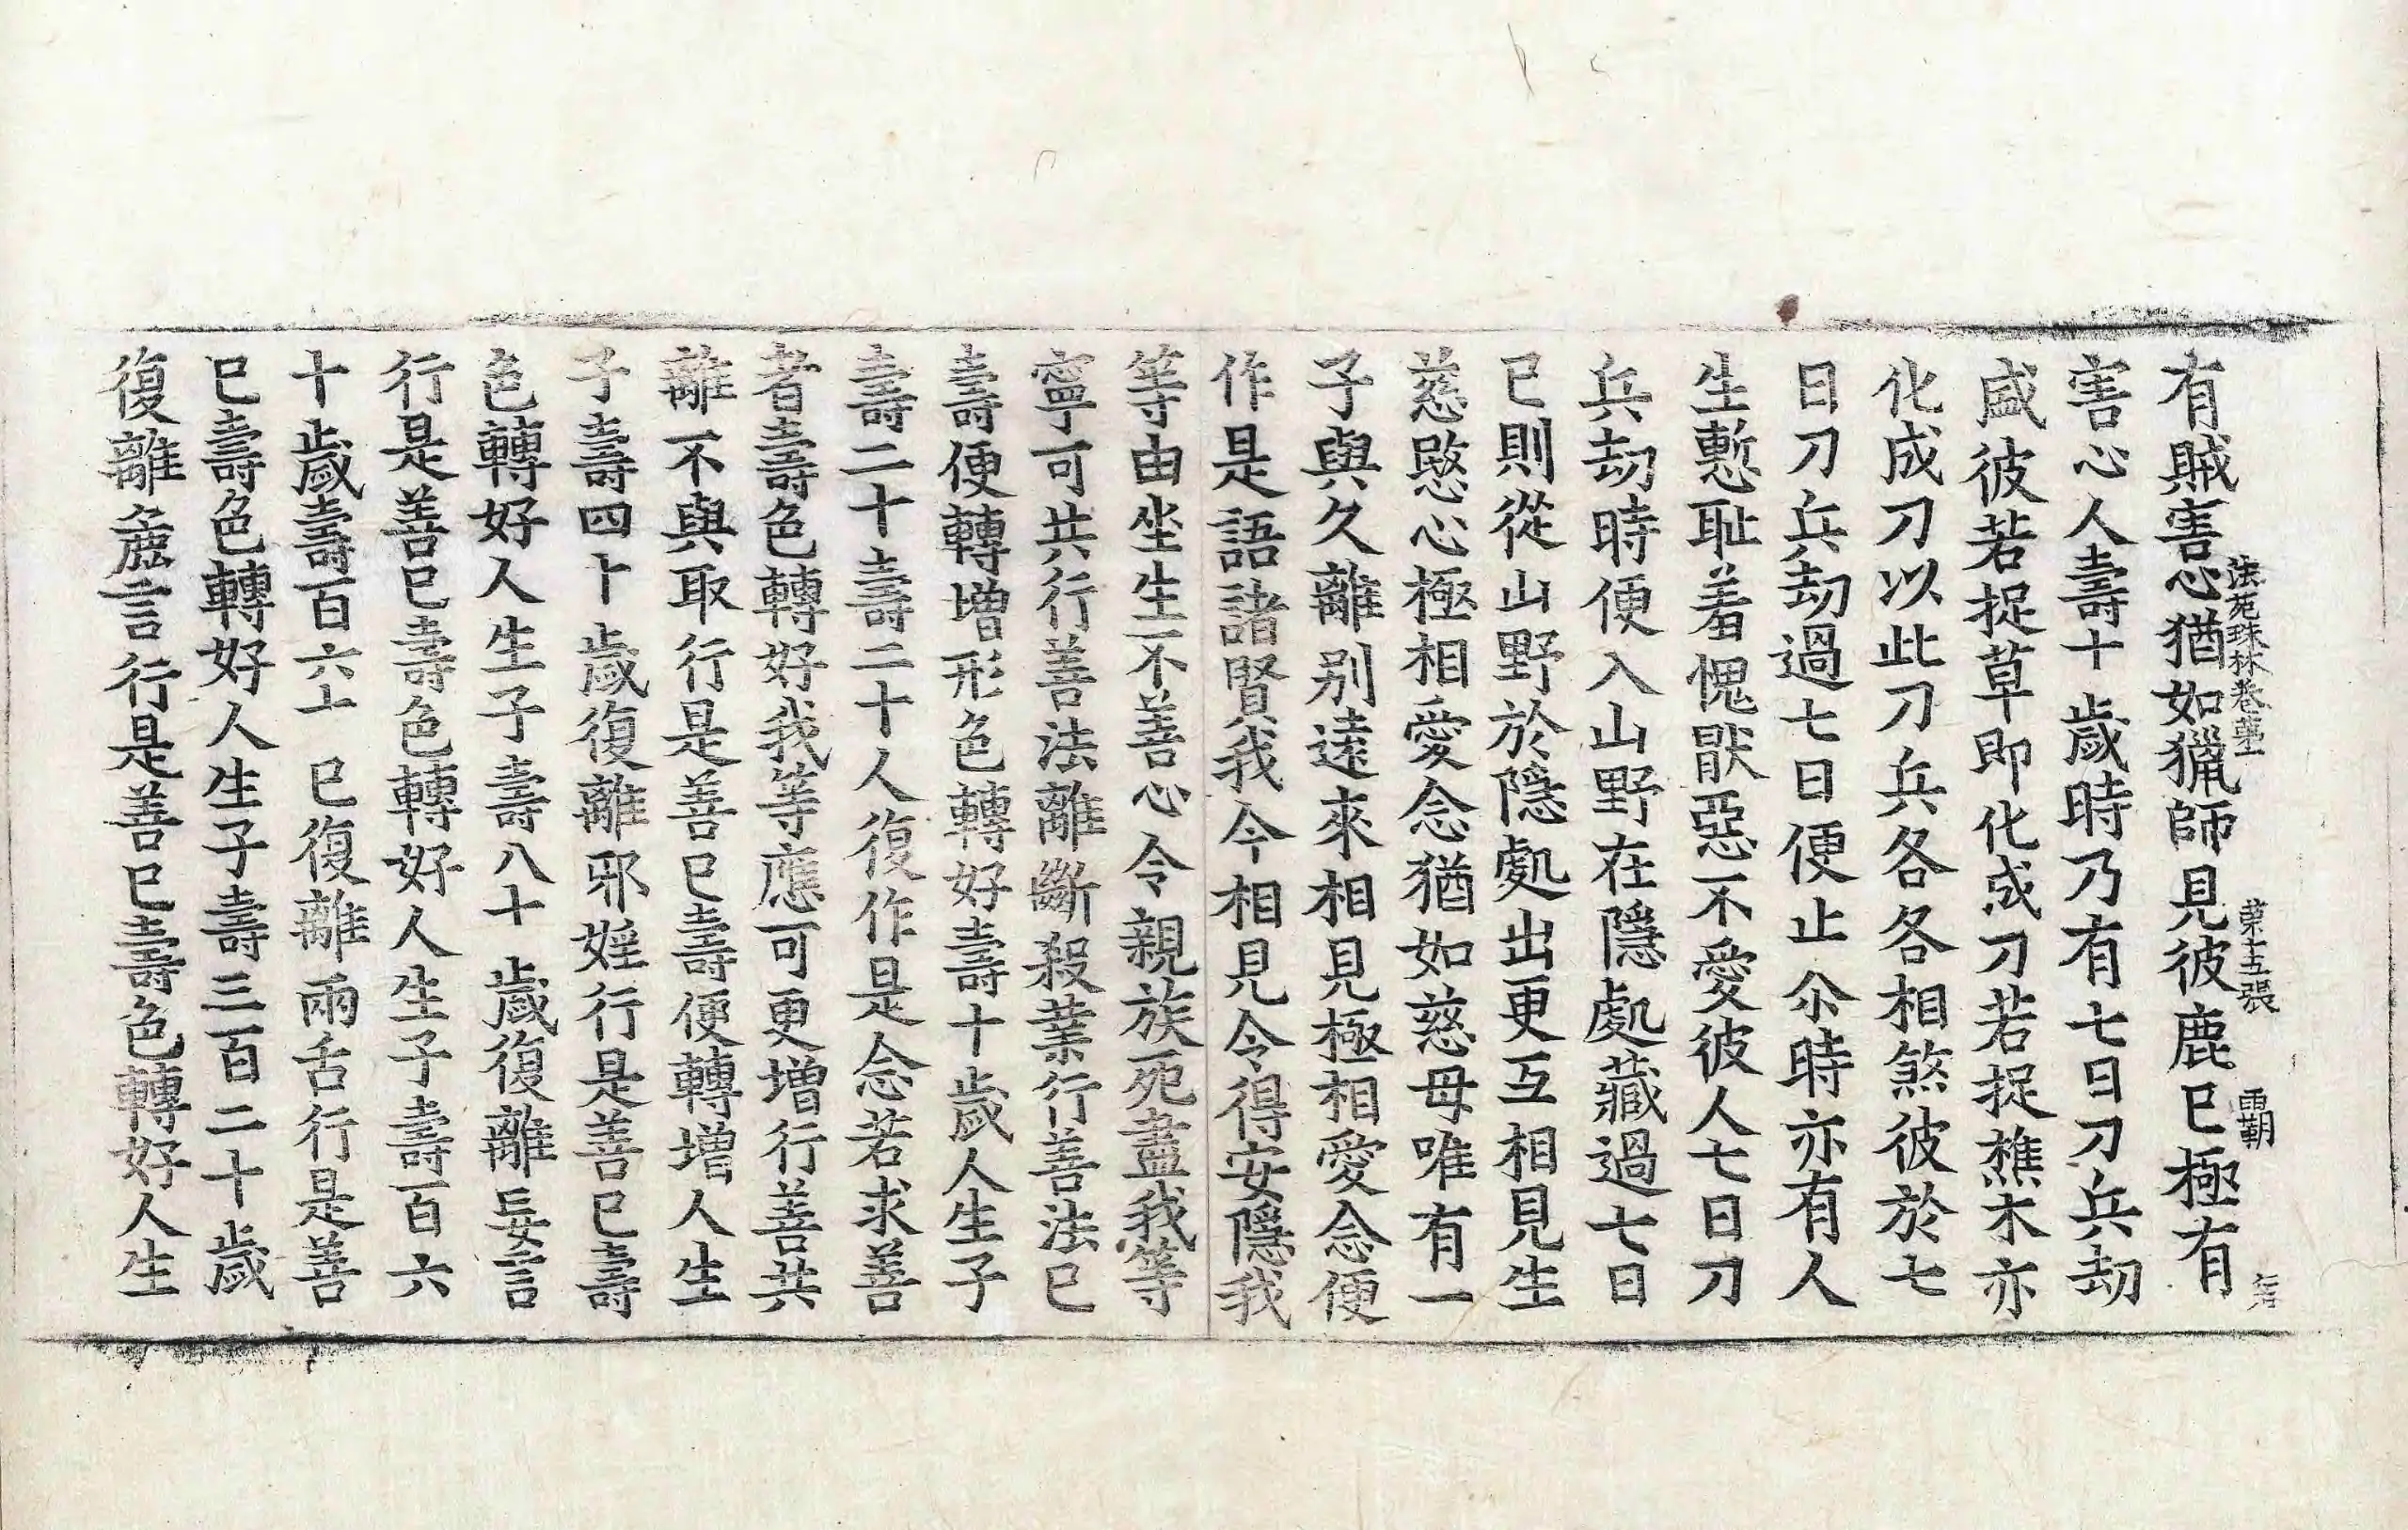 有賊害心猶如獵師見彼鹿已極有
法苑珠林卷第一 第十五張 覇
害心人壽十歲時乃有七日刀兵劫
感彼若捉草即化成刀若捉樵木亦
化成刀以此刀兵各各相煞彼於七
日刀兵劫過七日便止尒時亦有人
生慙耻羞愧猒惡不愛彼人七日刀
兵劫時便入山野在隱處藏過七日
已則從山野於隱處出更互相見生
慈愍心極相愛念猶如慈母唯有一
子與久離别遠來相見極相愛念便
作是語諸賢我今相見令得安隱我
等由坐生不善心令親族死盡我等
寧可共行善法離斷殺業行善法已
壽便轉增形色轉好壽十歲人生子
壽二十壽二十人復作是念若求善
者壽色轉好我等應可更增行善共
離不與取行是善已壽便轉增人生
子壽四十歲復離邪婬行是善已壽
色轉好人生子壽八十歲復離妄言
行是善已壽色轉好人生子壽百六
十歲壽百六十已復離兩舌行是善
已壽色轉好人生子壽三百二十歲
復離麁言行是善已壽色轉好人生